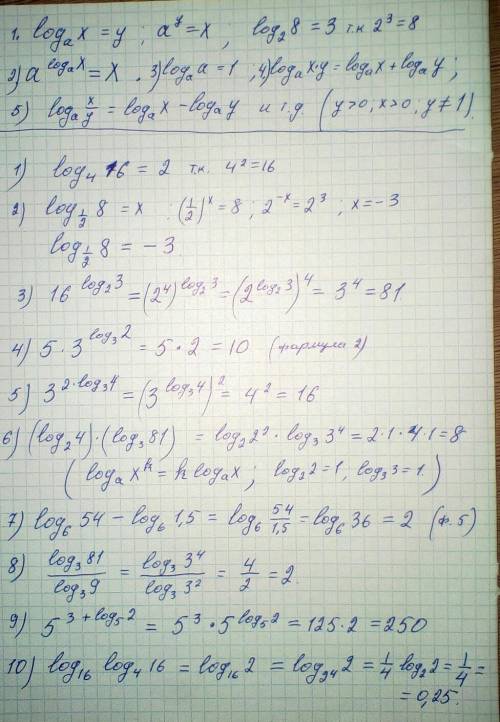 1. logₐx = y ; aʸ = x , log₂8 = 3 т.к 2³ = 8
2) a^(logₐx) = x . 3) logₐa = 1 ; 4) logₐx·y = logₐx + logₐy ;
5) logₐ x/y = logₐx − logₐy и т.д. (y>0, x>0 ; y≠1).
1) log₄ 16 = 2 т.к. 4² = 16
2) log_(1/2) 8 = x : (1/2)ˣ = 8 ; 2⁻ˣ = 2³ ; x = −3
log_(1/2) 8 = −3
3) 16^(log₂3) = (2⁴)^(log₂3) = (2^(log₂3))⁴ = 3⁴ = 81
4) 5 · 3^(log₃2) = 5 · 2 = 10 (формула 2)
5) 3^(2·log₃4) = (3^(log₃4))² = 4² = 16
6) (log₂4)·(log₃81) = log₂2² · log₃3⁴ = 2·1·4·1 = 8
(logₐxᵏ = k logₐx ; log₂2 = 1, log₃3 = 1.)
7) log₆54 − log₆1,5 = log₆ 54/1,5 = log₆36 = 2 (ф. 5)
8) log₃81/log₃9 = log₃3⁴/log₃3² = 4/2 = 2.
9) 5^(3+log₅2) = 5³ · 5^(log₅2) = 125·2 = 250
10) log₁₆ log₄16 = log₁₆2 = log_(2⁴) 2 = 1/4 log₂2 = 1/4 =
= 0,25.